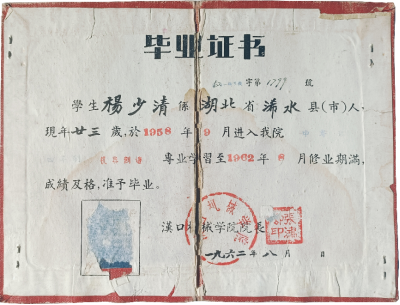 毕业证书
字第1799号
学生楊少清係湖北省浠水县(市)人,
現年廿三歲,於1958年9月进入我院
专业学習至1962年8月修业期滿,
成績及格,准予毕业。
漢口机械学院院長
一九六二年八月 日